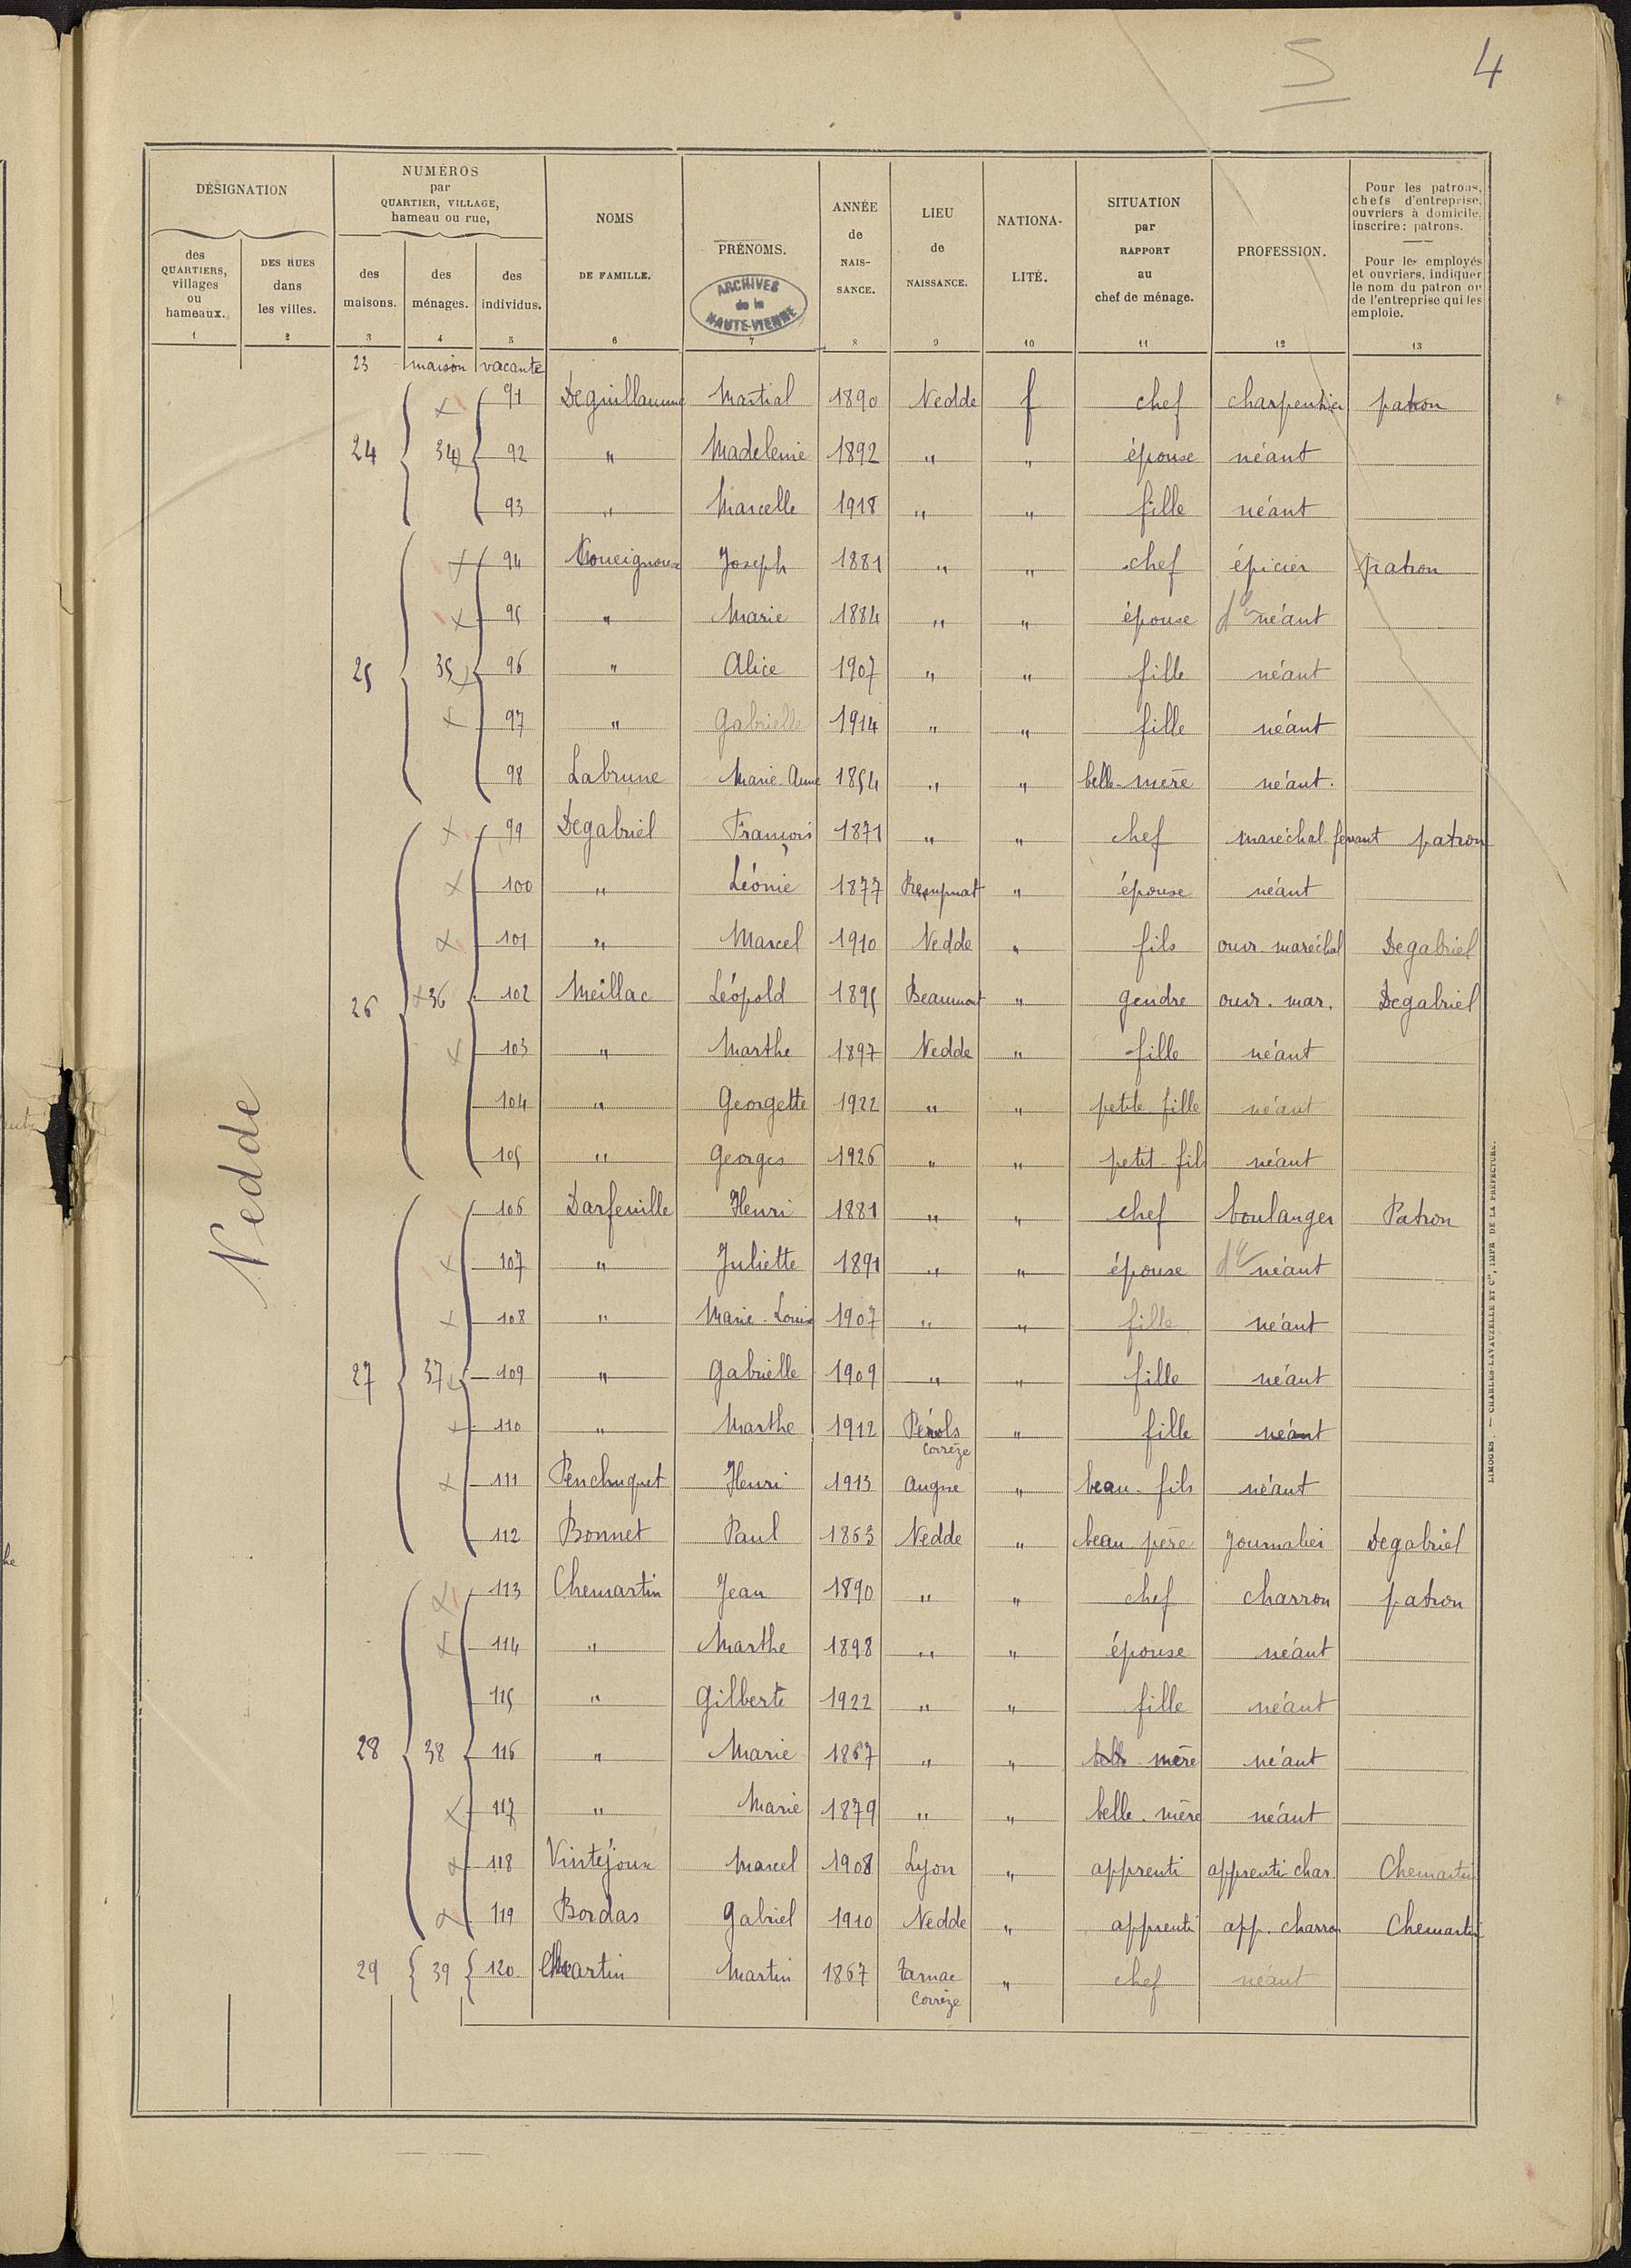 S 4
DÉSIGNATION
NUMÉROS par QUARTIER, VILLAGE, hameau ou rue,
NOMS DE FAMILLE.
PRÉNOMS.
ANNÉE de NAISSANCE.
LIEU de NAISSANCE.
NATIONALITÉ.
SITUATION par RAPPORT au chef de ménage.
PROFESSION.
Pour les patrons, chefs d'entreprise, ouvriers à domicile, inscrire: patrons.
Pour les employés et ouvriers, indiquer le nom du patron ou de l'entreprise qui les emploie.
des QUARTIERS, villages ou hameaux.
DES RUES dans les villes.
des maisons.
des ménages.
des individus.
ARCHIVES de la HAUTE-VIENNE
1 2 3 4 5 6 7 8 9 10 11 12 13
Nedde
23 maison vacante
91 Deguillaume Martial 1890 Nedde f chef charpentier patron
24 34 92 " Madeleine 1892 " " épouse néant
93 " Marcelle 1918 " " fille néant
94 Joseph 1881 " " chef épicier patron
95 " Marie 1884 " " épouse néant
25 35 96 " Alice 1907 " " fille néant
97 " Gabrielle 1914 " " fille néant
98 Labrune Marie-Anne 1854 " " belle-mère néant.
99 Degabriel François 1871 " " chef maréchal ferrant patron
100 " Léonie 1877 " épouse néant
101 " Marcel 1910 Nedde " fils ouvr. maréchal Degabriel
26 36 102 Meillac Léopold 1895 Beaumont " gendre ouvr. mar. Degabriel
103 " Marthe 1897 Nedde " fille néant
104 " Georgette 1922 " " petite fille néant
105 " Georges 1926 " " petit-fils néant
106 Darfeuille Henri 1881 " " chef boulanger Patron
107 " Juliette 1891 " " épouse néant
108 " Marie-Louise 1907 " " fille néant
27 37 109 " Gabrielle 1909 " " fille néant
110 " Marthe 1912 Pérols Corrèze " fille néant
111 Penchuquet Henri 1913 Augne " beau-fils néant
112 Bonnet Paul 1863 Nedde " beau père journalier Degabriel
113 Chemartin Jean 1890 " " chef charron patron
114 " Marthe 1898 " " épouse néant
115 " Gilberte 1922 " " fille néant
28 38 116 " Marie 1867 " " mère néant
117 " Marie 1879 " " belle-mère néant
118 Vintéjoux Marcel 1908 Lyon " apprenti apprenti char. Chemartin
119 Bordas Gabriel 1910 Nedde " apprenti app. charron Chemartin
29 39 120 Martin 1867 Tarnac Corrèze " chef néant
LIMOGES. — CHARLES-LAVAUZELLE ET Cie, IMPR DE LA PRÉFECTURE.